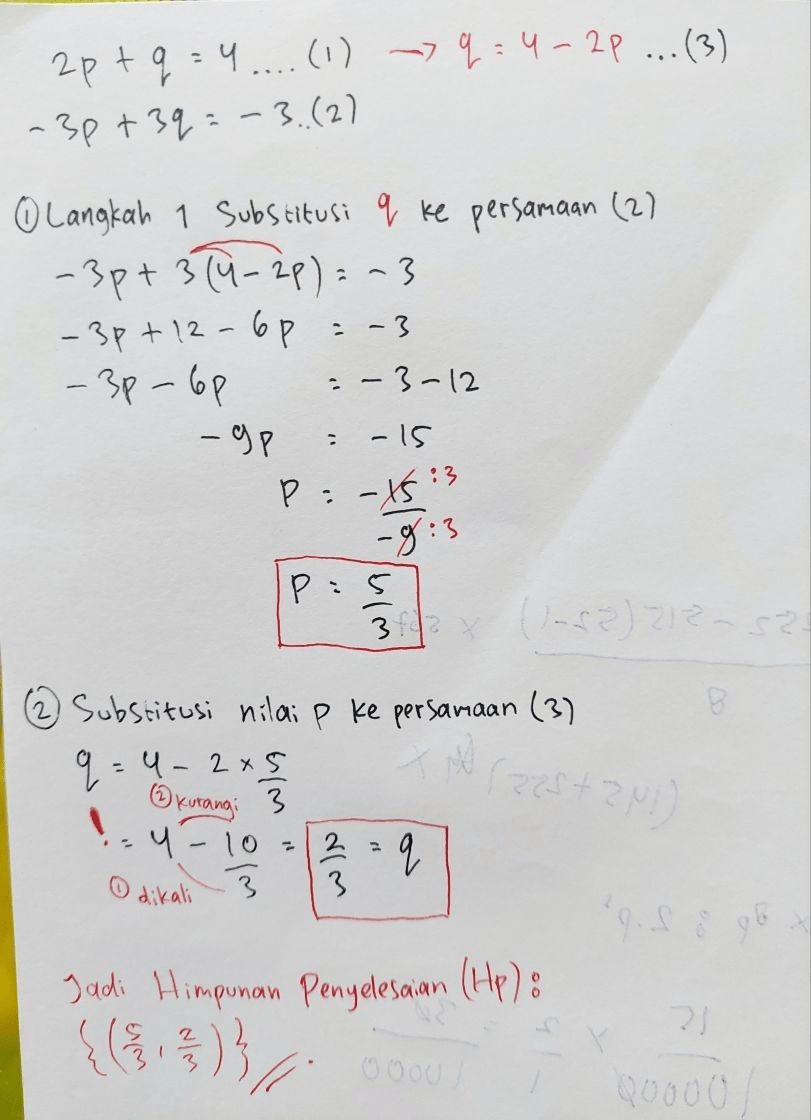 2p + q = 4 .... (1) → q = 4 - 2p ... (3)
-3p + 3q = -3 .. (2)
① Langkah 1 Substitusi q ke persamaan (2)
-3p + 3(4 - 2p) = -3
-3p + 12 - 6p = -3
-3p - 6p = -3 - 12
-9p = -15
P = -15 :3 / -9 :3
P = 5/3
② Substitusi nilai p ke persamaan (3)
q = 4 - 2 × 5/3
② kurangi
! = 4 - 10/3 = 2/3 = q
① dikali
Jadi Himpunan Penyelesaian (Hp) :
{(5/3, 2/3)} //.